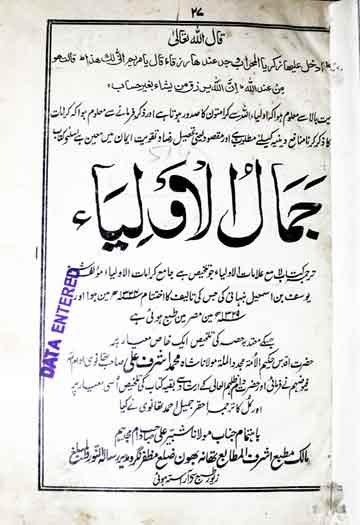 ۲۷
قال اللہ تعالیٰ
دخل علیها زکریا المحراب وجد عندها رزقا قال یا مریم انی لک هذا قالت هو
من عند اللہ ان اللہ یرزق من یشاء بغیر حساب
بالا سے معلوم ہوا کہ اولیاء اللہ سے کرامتوں کا صدور ہوتا ہے اور ذکر فرمانے سے معلوم ہوا کہ کرامات
کا ذکر کرنا منافع دینیہ کیلئے مطلوب ہے اور مقصود یعنی تحصیل رضا و تقویت ایمان میں معین ہے اسلئے کتاب
جَمالُ الْاَوْلِیَاء
ترجمہ کتاب مع علامات الاولیاء جو تلخیص ہے جامع کرامات الاولیاء مؤلفہ
یوسف بن اسمعیل نبہانی کی جس کی تالیف کا اختتام ۱۳۲۴ھ میں ہوا اور
۱۳۲۹ھ میں مصر میں طبع ہوئی ہے
جسکے مقدمہ حصہ کی تلخیص ایک خاص معیار پر
حضرت اقدس حکیم الامۃ مجدد الملۃ مولانا شاہ محمد اشرف علی صاحب تھانوی
نے فرمائی اور بقیہ کتاب کی تلخیص اسی معیار پر
اور کل کا ترجمہ احقر جمیل احمد تھانوی نے کیا
باہتمام جناب مولانا شبیر علی صاحب
مالک مطبع اشرف المطابع تھانہ بھون ضلع مظفر نگر و مدیر رسالہ النور و المبلغ
زیور طبع سے آراستہ ہوئی
DATA ENTERED